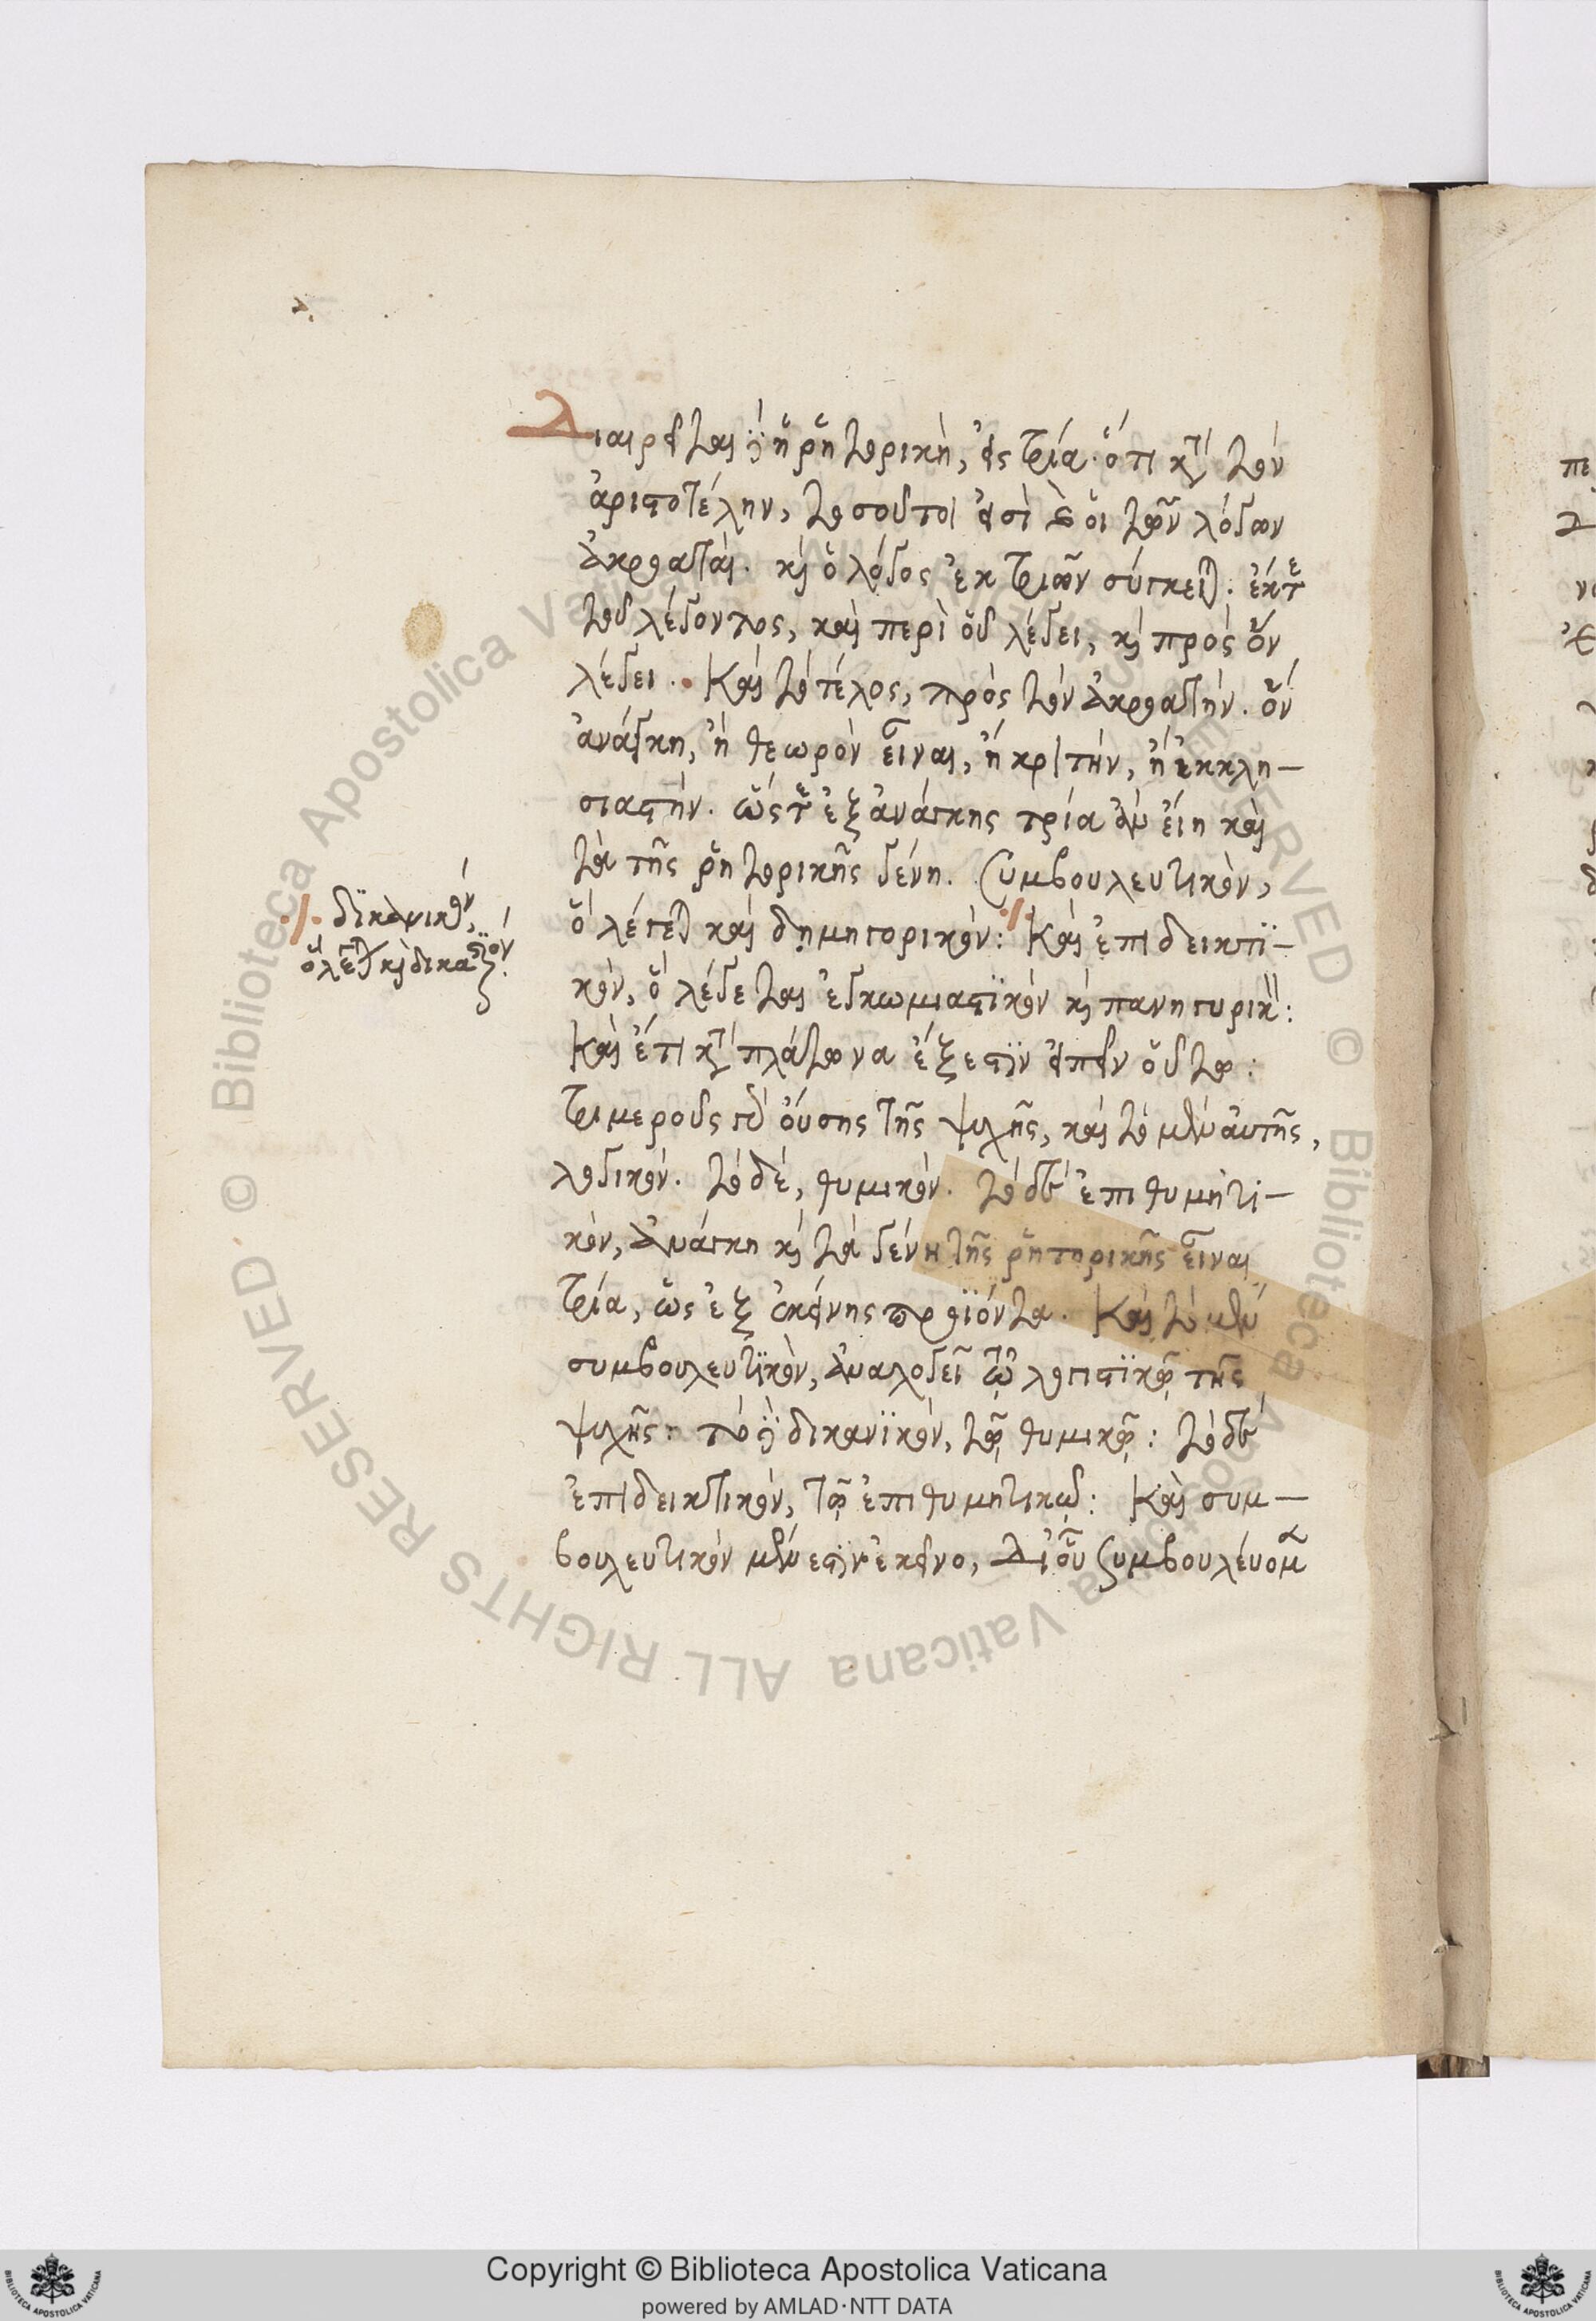 Διαιρεῖται δὲ ἡ ῥητορικὴ, εἰς τρία. ὅτι κατὰ τὸν
ἀριστοτέλην, τοσοῦτοι εἰσὶ καὶ οἱ τῶν λόγων
ἀκροαταί. καὶ ὁ λόγος ἐκ τριῶν σύγκειται. ἔκ τε
τοῦ λέγοντος, καὶ περὶ οὗ λέγει, καὶ πρὸς ὃν
λέγει. Καὶ τὸ τέλος, πρὸς τὸν ἀκροατήν. ὃν
ἀνάγκη, ἢ θεωρὸν εἶναι, ἢ κριτήν, ἢ ἐκκλη-
σιαστήν. ὥστε ἐξ ἀνάγκης τρία ἂν εἴη καὶ
τὰ τῆς ῥητορικῆς γένη. Συμβουλευτικὸν,
./. δικανικὸν,
ὃ λέγεται καὶ δικαστικόν.
ὃ λέγεται καὶ δημηγορικόν: ./. Καὶ ἐπιδεικτι-
κὸν, ὃ λέγεται ἐγκωμιαστικὸν καὶ πανηγυρικὸν:
Καὶ ἔτι κατὰ πλάτωνα ἔξεστιν εἰπεῖν οὕτω:
Τριμεροῦς γὰρ οὔσης τῆς ψυχῆς, καὶ τὸ μὲν αὐτῆς,
λογικόν. τὸ δὲ, θυμικόν. τὸ δὲ ἐπιθυμητι-
κὸν, ἀνάγκη καὶ τὰ γένη τῆς ῥητηρικῆς εἶναι
τρία, ὡς ἐξ ἐκείνης προϊόντα. Καὶ τὸ μὲν
συμβουλευτικὸν, ἀναλογεῖ τῷ λογιστικῷ τῆς
ψυχῆς: τὸ δὲ δικανικὸν, τῷ θυμικῷ: τὸ δὲ
ἐπιδεικτικὸν, τῷ ἐπιθυμητικῷ: Καὶ συμ-
βουλευτικὸν μέν ἐστιν ἐκεῖνο, δι' οὗ συμβουλεύομεν
πε